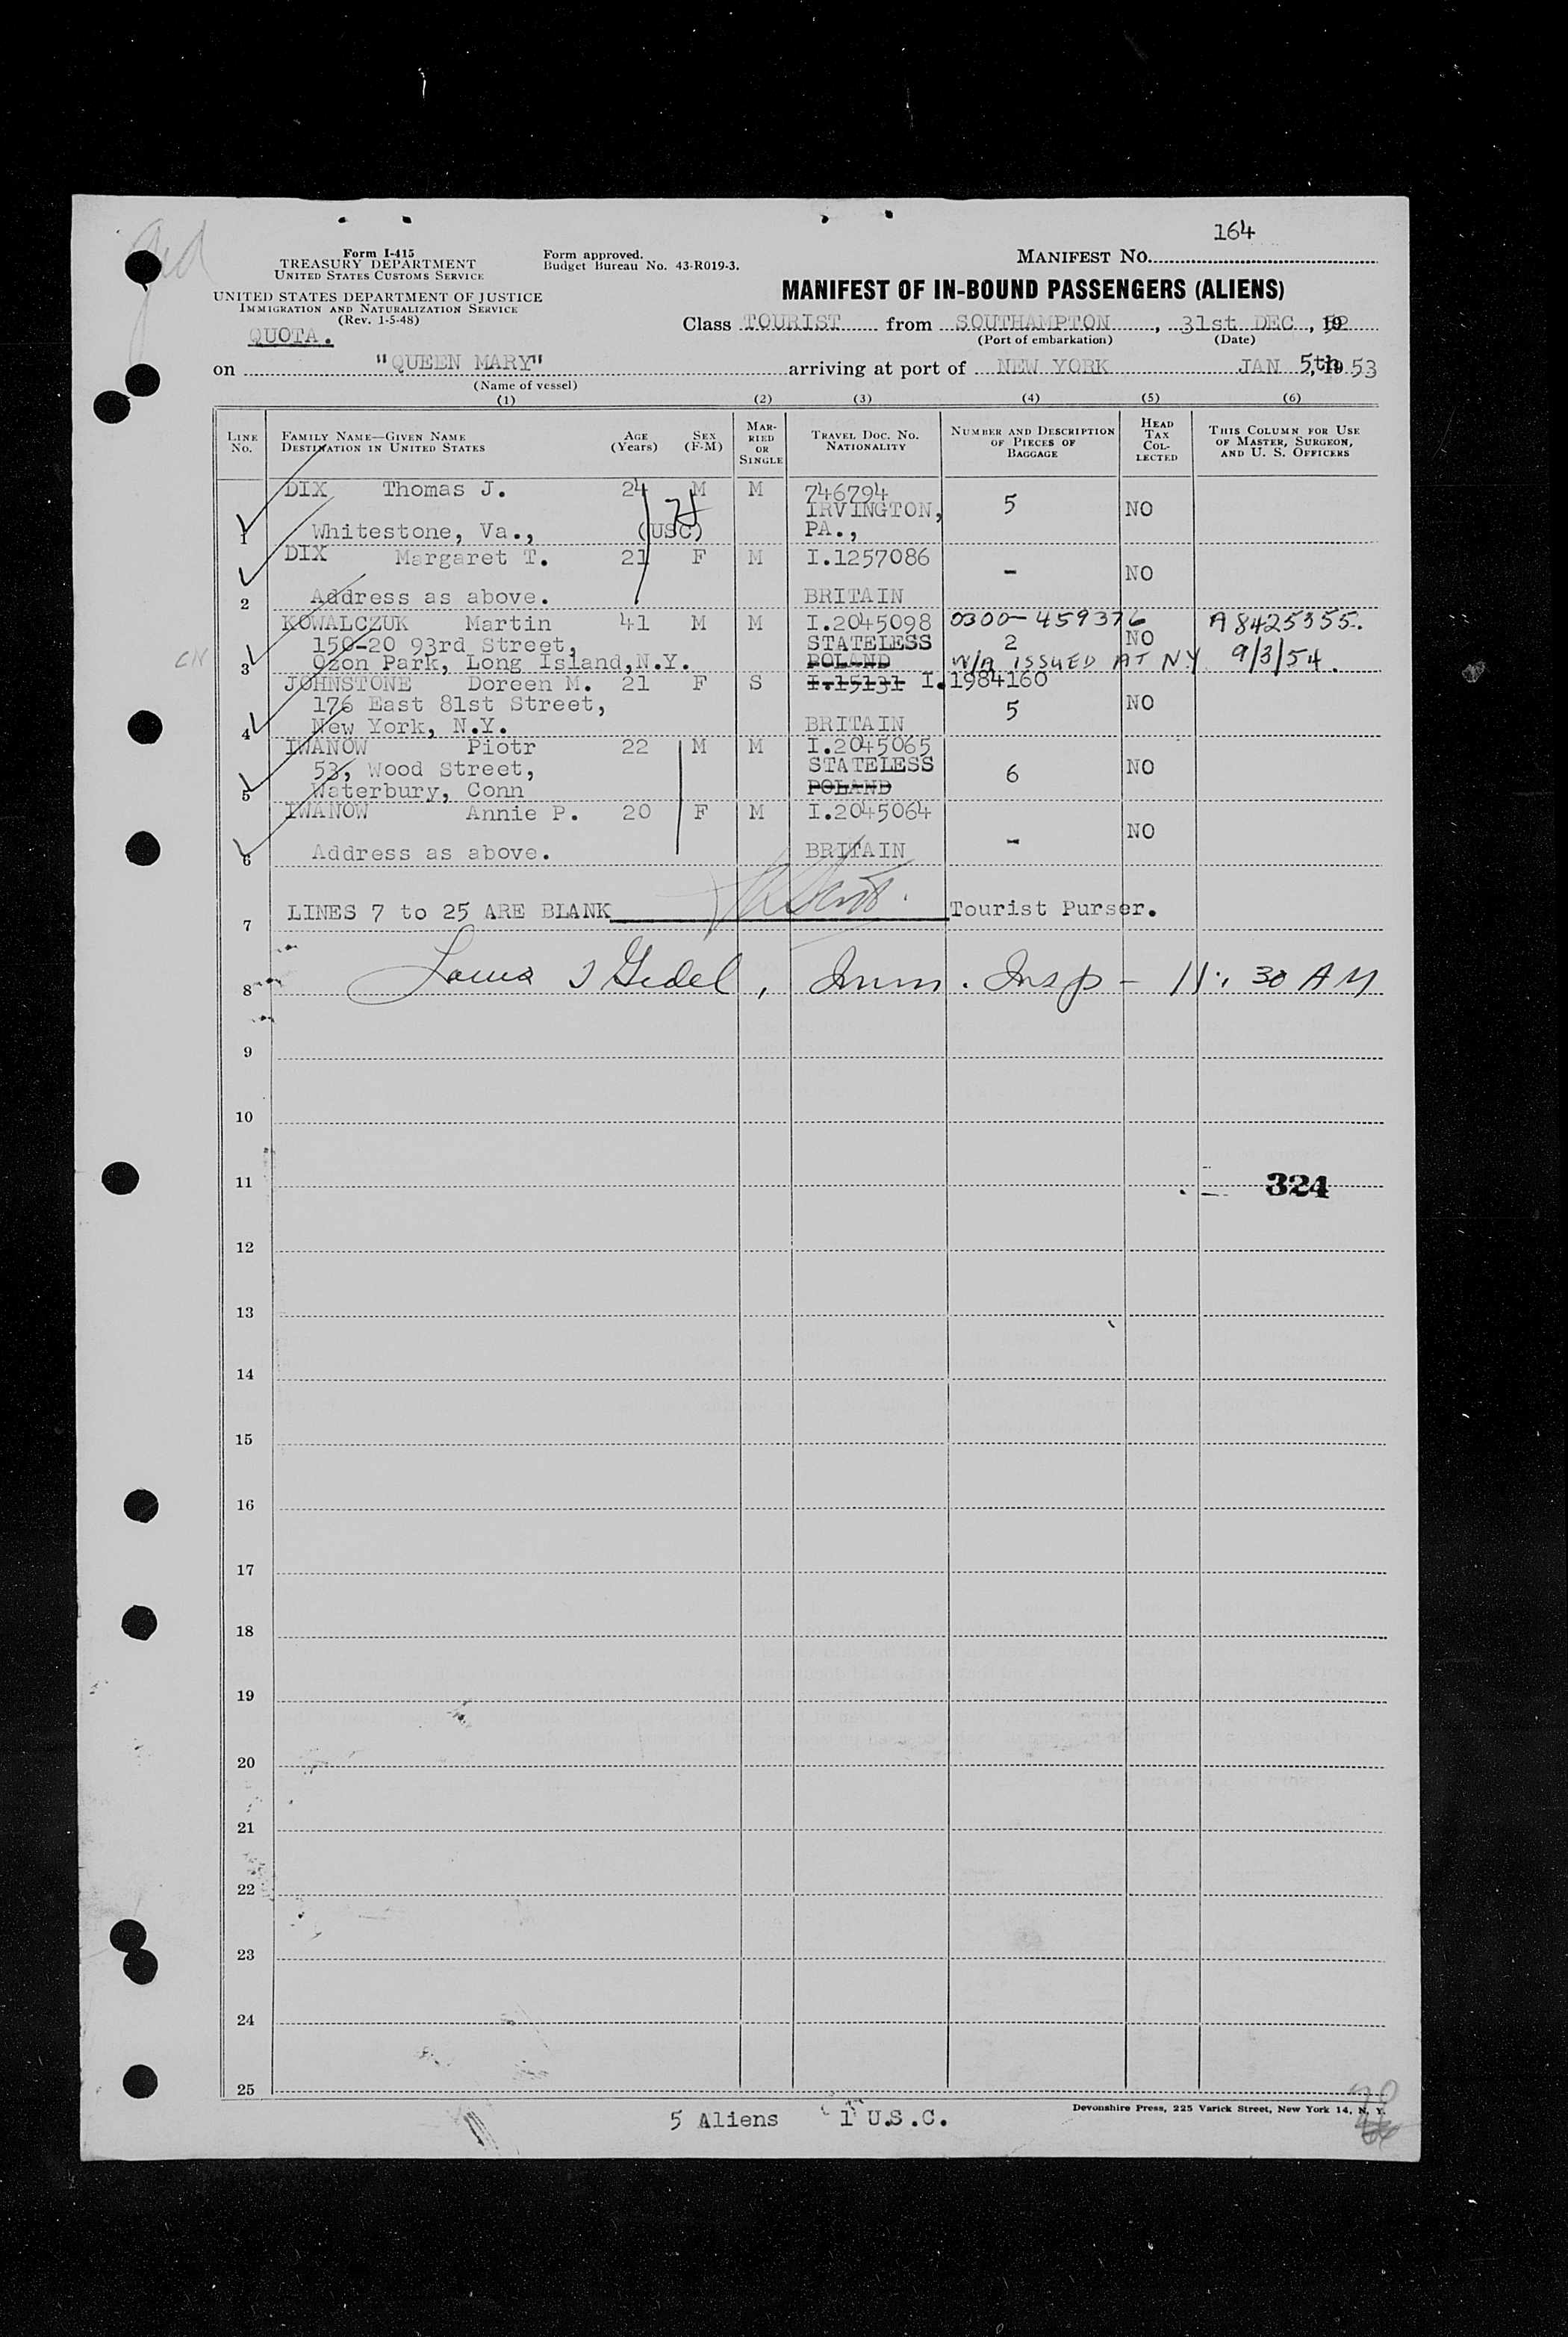 164
Form I-415
TREASURY DEPARTMENT
UNITED STATES CUSTOMS SERVICE
Form approved.
Budget Bureau No. 43-R019-3.
MANIFEST NO.
UNITED STATES DEPARTMENT OF JUSTICE
IMMIGRATION AND NATURALIZATION SERVICE
(Rev. 1-5-48)
MANIFEST OF IN-BOUND PASSENGERS (ALIENS)
QUOTA.
Class TOURIST from SOUTHAMPTON, 31st DEC, 19
(Port of embarkation) (Date)
on "QUEEN MARY" arriving at port of NEW YORK JAN 5th, 19 53
(Name of vessel)
(1) (2) (3) (4) (5) (6)
LINE NO. FAMILY NAME—GIVEN NAME DESTINATION IN UNITED STATES AGE (Years) SEX (F-M) MARRIED OR SINGLE TRAVEL DOC. NO. NATIONALITY NUMBER AND DESCRIPTION OF PIECES OF BAGGAGE HEAD TAX COLLECTED THIS COLUMN FOR USE OF MASTER, SURGEON, AND U. S. OFFICERS
DIX Thomas J. 24 M M 746794
IRVINGTON, 5 NO
1 Whitestone, Va., (USC) PA.,
DIX Margaret T. 21 F M I.1257086
- NO
2 Address as above. BRITAIN
KOWALCZUK Martin 41 M M I.2045098 0300-459376 A8425355.
150-20 93rd Street, STATELESS 2 NO
3 Ozon Park, Long Island, N.Y. POLAND W/A ISSUED AT NY 9/3/54.
JOHNSTONE Doreen M. 21 F S I.15131 I.1984160
176 East 81st Street, 5 NO
4 New York, N.Y. BRITAIN
IWANOW Piotr 22 M M I.2045065
53, Wood Street, STATELESS 6 NO
5 Waterbury, Conn POLAND
IWANOW Annie P. 20 F M I.2045064
- NO
6 Address as above. BRITAIN
7 LINES 7 to 25 ARE BLANK Tourist Purser.
8 Louis J Gedel, Imm. Insp - 11:30 AM
9
10
11 324
12
13
14
15
16
17
18
19
20
21
22
23
24
25
5 Aliens 1 U.S.C.
Devonshire Press, 225 Varick Street, New York 14, N. Y.